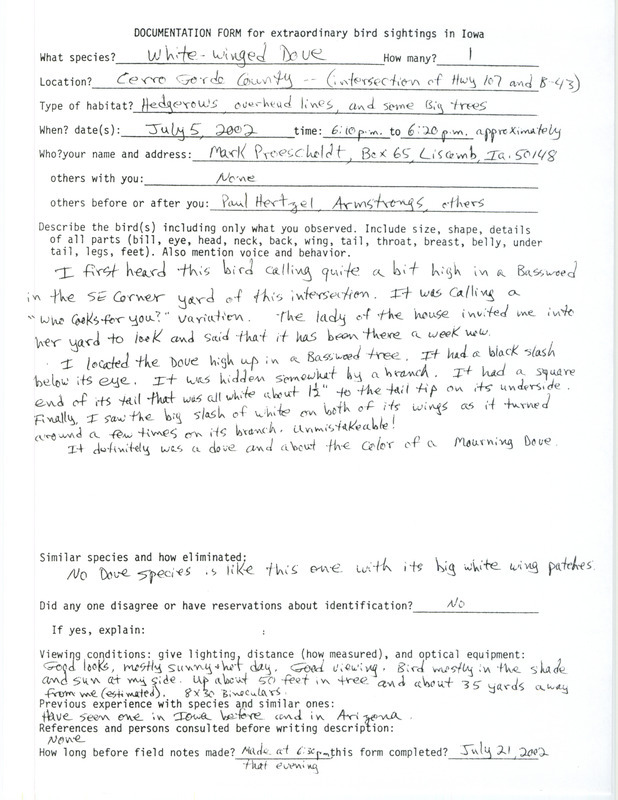 DOCUMENTATION FORM for extraordinary bird sightings in Iowa
What species? White-winged Dove How many? 1
Location? Cerro Gordo County -- (intersection of Hwy 107 and B-43)
Type of habitat? Hedgerows overhead lines, and some Big trees
When? date(s): July 5, 2002 time: 6:10 p.m. to 6:20 p.m. approximately
Who?your name and address: Mark Proescholdt, Box 65, Liscomb, Ia. 50148
others with you: None
others before or after you: Paul Hertzel, Armstrongs, others
Describe the bird(s) including only what you observed. Include size, shape, details
of all parts (bill, eye, head, neck, back, wing, tail, throat, breast, belly, under
tail, legs, feet). Also mention voice and behavior.
I first heard this bird calling quite a bit high in a Basswood
in the SE Corner yard of this intersection. It was calling a
"Who Cooks for you?" variation. The lady of the house invited me into
her yard to look and said that it has been there a week now.
I located the Dove high up in a Basswood tree. It had a black slash
below its eye. It was hidden somewhat by a branch. It had a square
end of its tail that was all white about 1½" to the tail tip on its underside.
Finally, I saw the big slash of white on both of its wings as it turned
around a few times on its branch. Unmistakeable!
It definitely was a dove and about the color of a Mourning Dove.
Similar species and how eliminated:
No Dove species is like this one with its big white wing patches.
Did any one disagree or have reservations about identification? No
If yes, explain:
Viewing conditions: give lighting, distance (how measured), and optical equipment:
Good looks, mostly sunny + hot day. Good viewing. Bird mostly in the shade
and sun at my side. Up about 50 feet in tree and about 35 yards away
from me (estimated). 8x30 Binoculars.
Previous experience with species and similar ones:
Have seen one in Iowa before and in Arizona.
References and persons consulted before writing description:
None
How long before field notes made? Made at 6:30pm this form completed? July 21, 2002
that evening